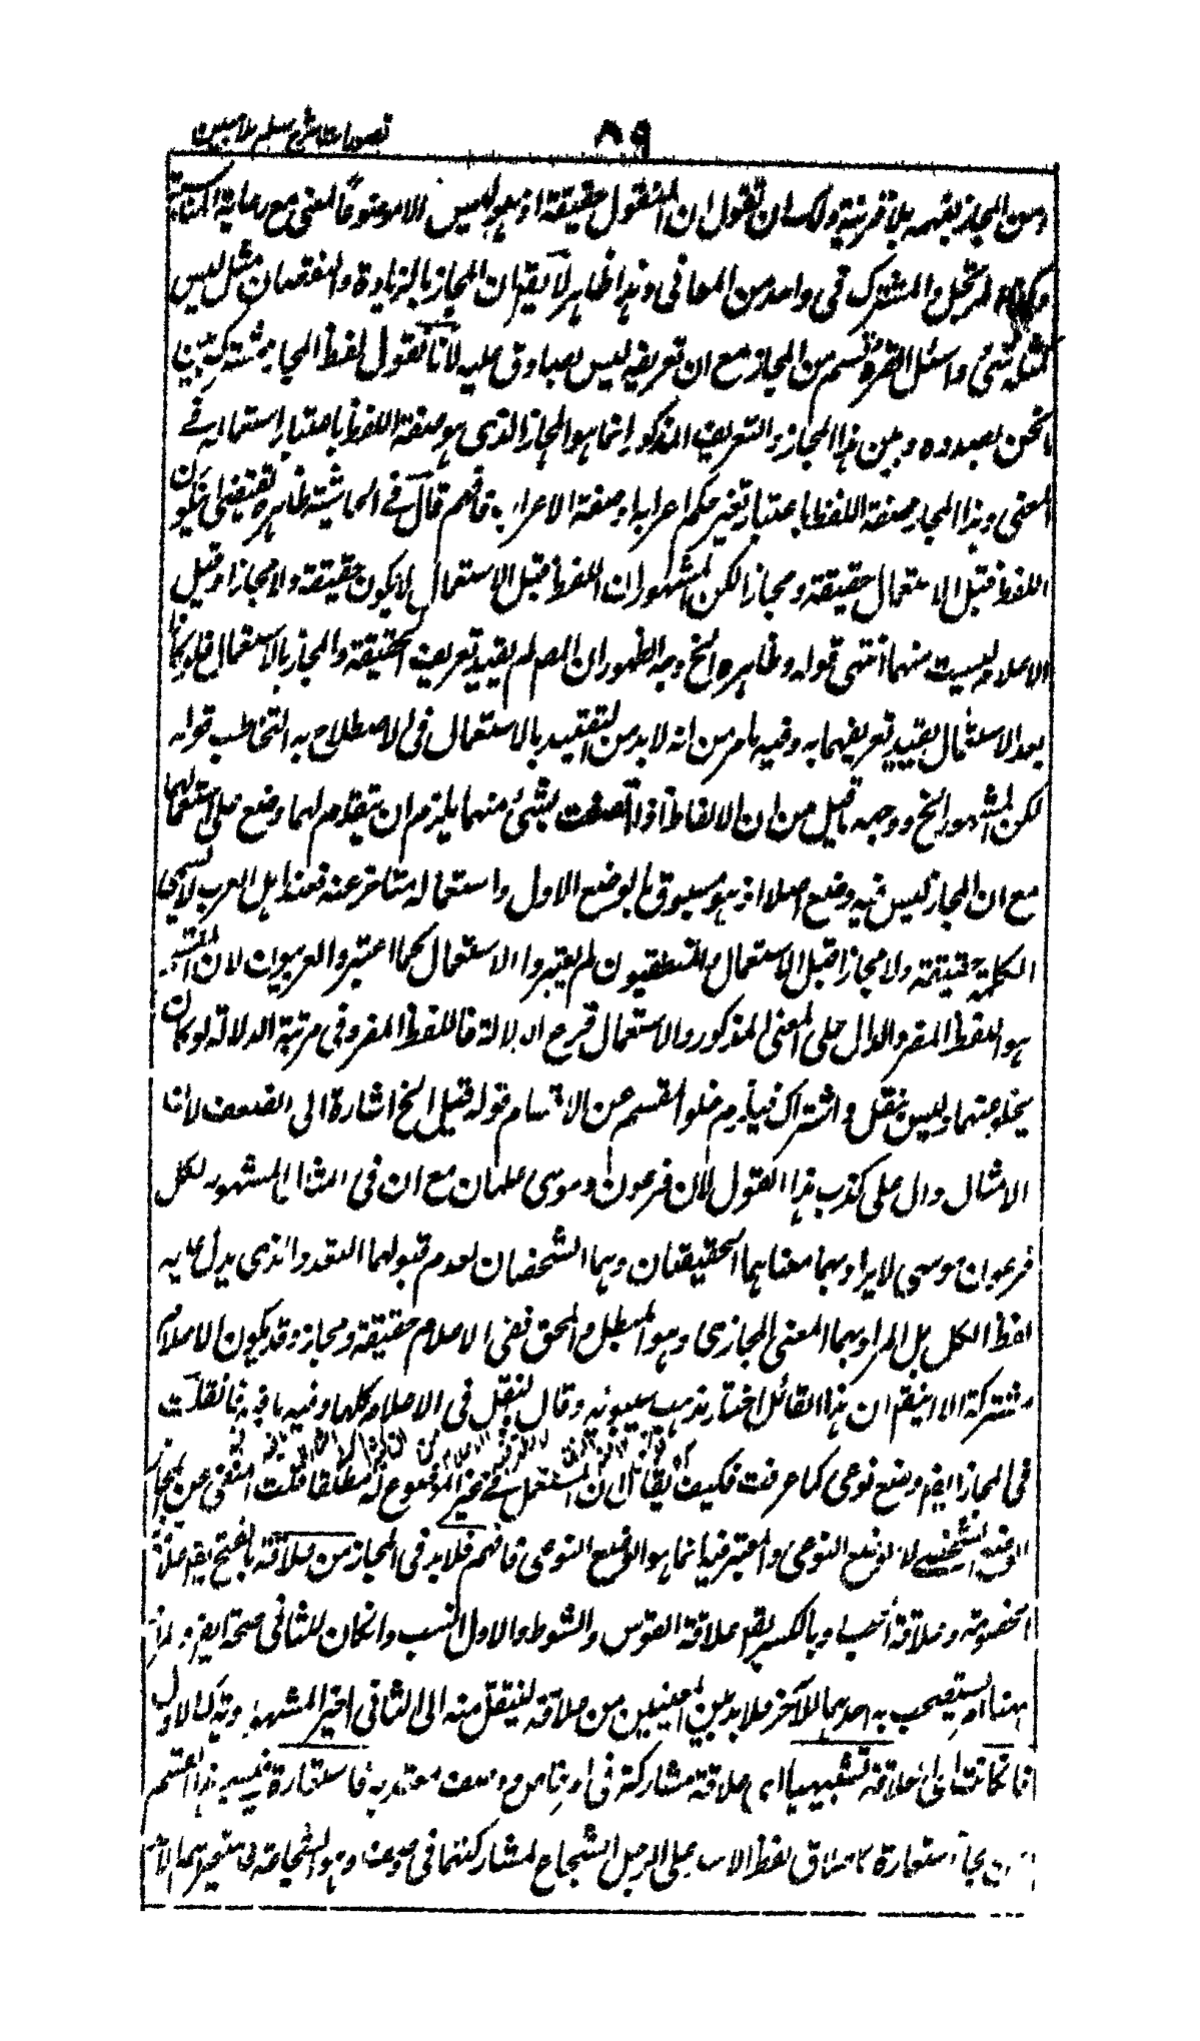 تصورات شرح سلم ملا مبین
٥٩
ومن المجاز بفهمه بلا قرينة ولك ان تقول ان المنقول حقيقة اذ هو ليس الا موضوعا لمعنى مع رعاية المناسبة
المرتجل والمشترك فى واحد من المعانى وهذا ظاهر لا يقال ان المجاز بالزيادة والنقصان مثل ليس
كمثله شئ واسئل القرية قسم من المجاز مع ان تعريفه ليس بصادق عليه لانا نقول لفظ المجاز مشترك بين
ما نحن بصدده وبين هذا المجاز والتعريف المذكور انما هو المجاز الذى هو صفة اللفظ باعتبار استعماله فے
المعنى وهذا المجاز صفة اللفظ باعتبار تغير حكم اعرابه او صفة الاعراب فافهم قال فے الحاشية ظاهره يقتضى ان يكون
اللفظ قبل الاستعمال حقيقة ومجازا لكن المشهور ان اللفظ قبل الاستعمال لا يكون حقيقة ولا مجازا وقيل
الاعلام ليست منهما انتهى قوله وظاهره الخ وجه الظهور ان المصلم يقيد تعريف الحقيقة والمجاز بالاستعمال فلو كانا
بعد الاستعمال بقيد تعريفهما به وفيه ما مر من انه لا بد من التقييد بالاستعمال فى الاصطلاح به التخاطب قوله
لكن المشهور الخ ووجهه ما قيل من ان الالفاظ اذا اتصفت بشئ منهما يلزم ان يتقدم لهما وضع على استعمالهما
مع ان المجاز ليس فيه وضع اصلا اذ هو مسبوق بالوضع الاول واستعماله متاخر عنه فعند اهل العرب لا تسمى
الكلمة حقيقة ولا مجازا قبل الاستعمال والمنطقيون لم يعتبروا الاستعمال كما اعتبر والعربيون لان المقسم
هو اللفظ المفرد الدال على المعنى المذكور والاستعمال فرع الدلالة فاللفظ المفرد فى مرتبة الدلالة لو كان
يخلو عنهما وليس بنقل واشتراك فيلزم خلو المقسم عن الاقسام قوله قيل الخ اشارة الى الضعف لان
الامثال دال على كذب هذا القول لان فرعون وموسى علمان مع ان فى المثال المشهور لكل
فرعون موسى لا يراد بهما معناهما الحقيقيان وهما الشخصان لعدم قبولهما التعدد الذى يدل عليه
لفظ الكل بل المراد بهما المعنى المجازى وهو المبطل والمحق ففى الاعلام حقيقة ومجاز وقد يكون الاعلام
مشتركة الا ان يقم ان هذا القائل اختار مذهب سيبويه وقال بنقل فى الاعلام كلها وفيه ما فيه فان قلت
فى المجاز ايضا وضع نوعى كما عرفت فكيف يقال ان المستعمل فے غير الموضوع له مطلقا قلت المنفى عن المجاز
الوضع الشخصى لا الوضع النوعى والمعتبر فيه انما هو الوضع النوعى فافهم فلا بد فى المجاز من علاقة بالفتح يقم علاقة
الخصومة وعلاقة الحب وبالكسر يقم علاقة القوس والسوط والاول انسب وان كان للثانى صحة ايضا والمراد
ههنا امر يستصحب به احدهما للآخر فلا بد بين المعنيين من علاقة لينتقل منه الى الثانى اخير المشهور وترك الاول
فان كانت اى العلاقة تشبيها اى علاقة مشاركة فى امر خاص ووصف معتد به فاستعارة فيسمى هذا القسم
من المجاز استعارة كاطلاق لفظ الاسد على الرجل الشجاع لمشاركتهما فى وصف وهو الشجاعة